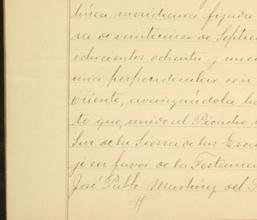 línea meridiana fijada
ra de veinticinco de Septiem
ochocientos ochenta y un
una perpendicular con
oriente, avanzándola ha
to que, unido al Picacho d
Sur de la Sierra de las Esca
je en favor de la Testamen
José Pablo Martínez del